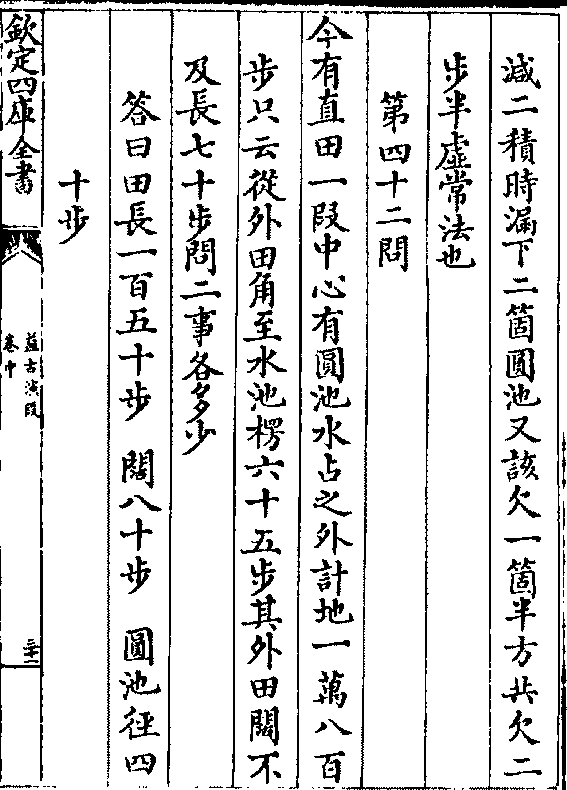 減二積時漏下二箇圓池又該欠一箇半方共欠二
步半虛常法也
第四十二問
今有直田一段中心有圓池水占之外計地一萬八百
步只云從外田角至水池楞六十五步其外田闊不
及長七十步問二事各多少
答曰田長一百五十步 闊八十步 圓池徑四
十步
欽定四庫全書
益古演段
卷中